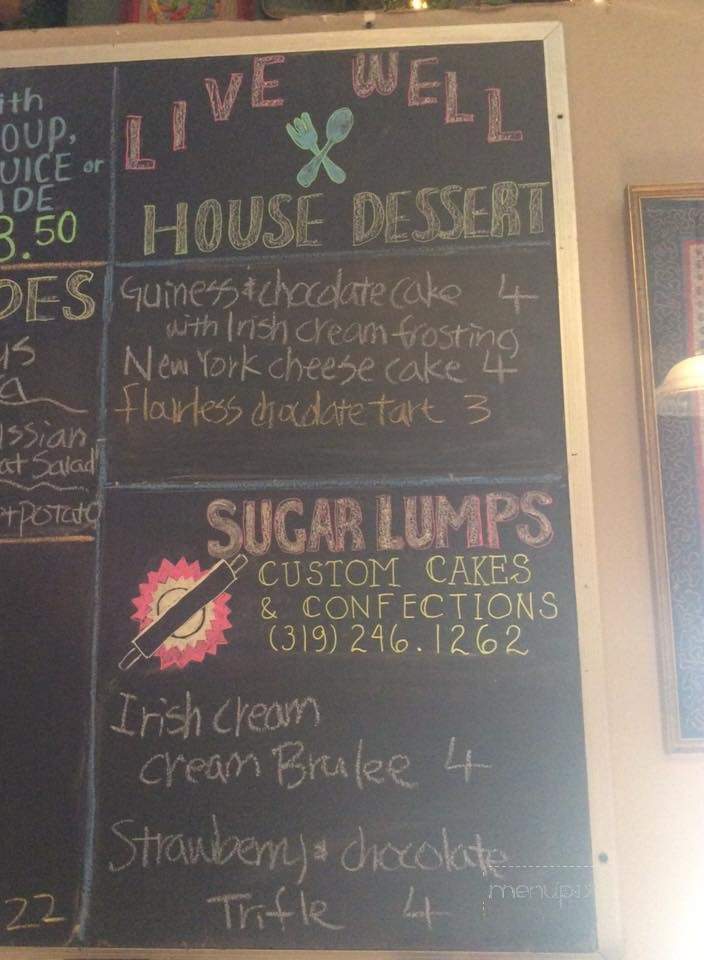 ith
OUP,
UICE or
IDE
8.50
DES
us
a
ssian
at Salad
potato
22
LIVE WELL
HOUSE DESSERT
Guiness & chocolate cake 4
with Irish cream frosting
New York cheese cake 4
flourless chocolate tart 3
SUGAR LUMPS
CUSTOM CAKES
& CONFECTIONS
(319) 246.1262
Irish cream
cream Brulee 4
Strawberry & chocolate
Trifle 4
menupix